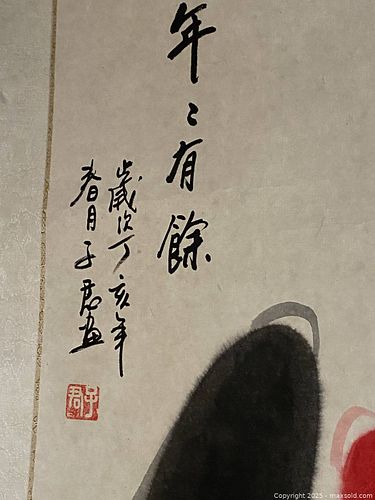 年〻有餘
歲次丁亥年
春月子君画
子君
Copyright 2025 - maxsold.com